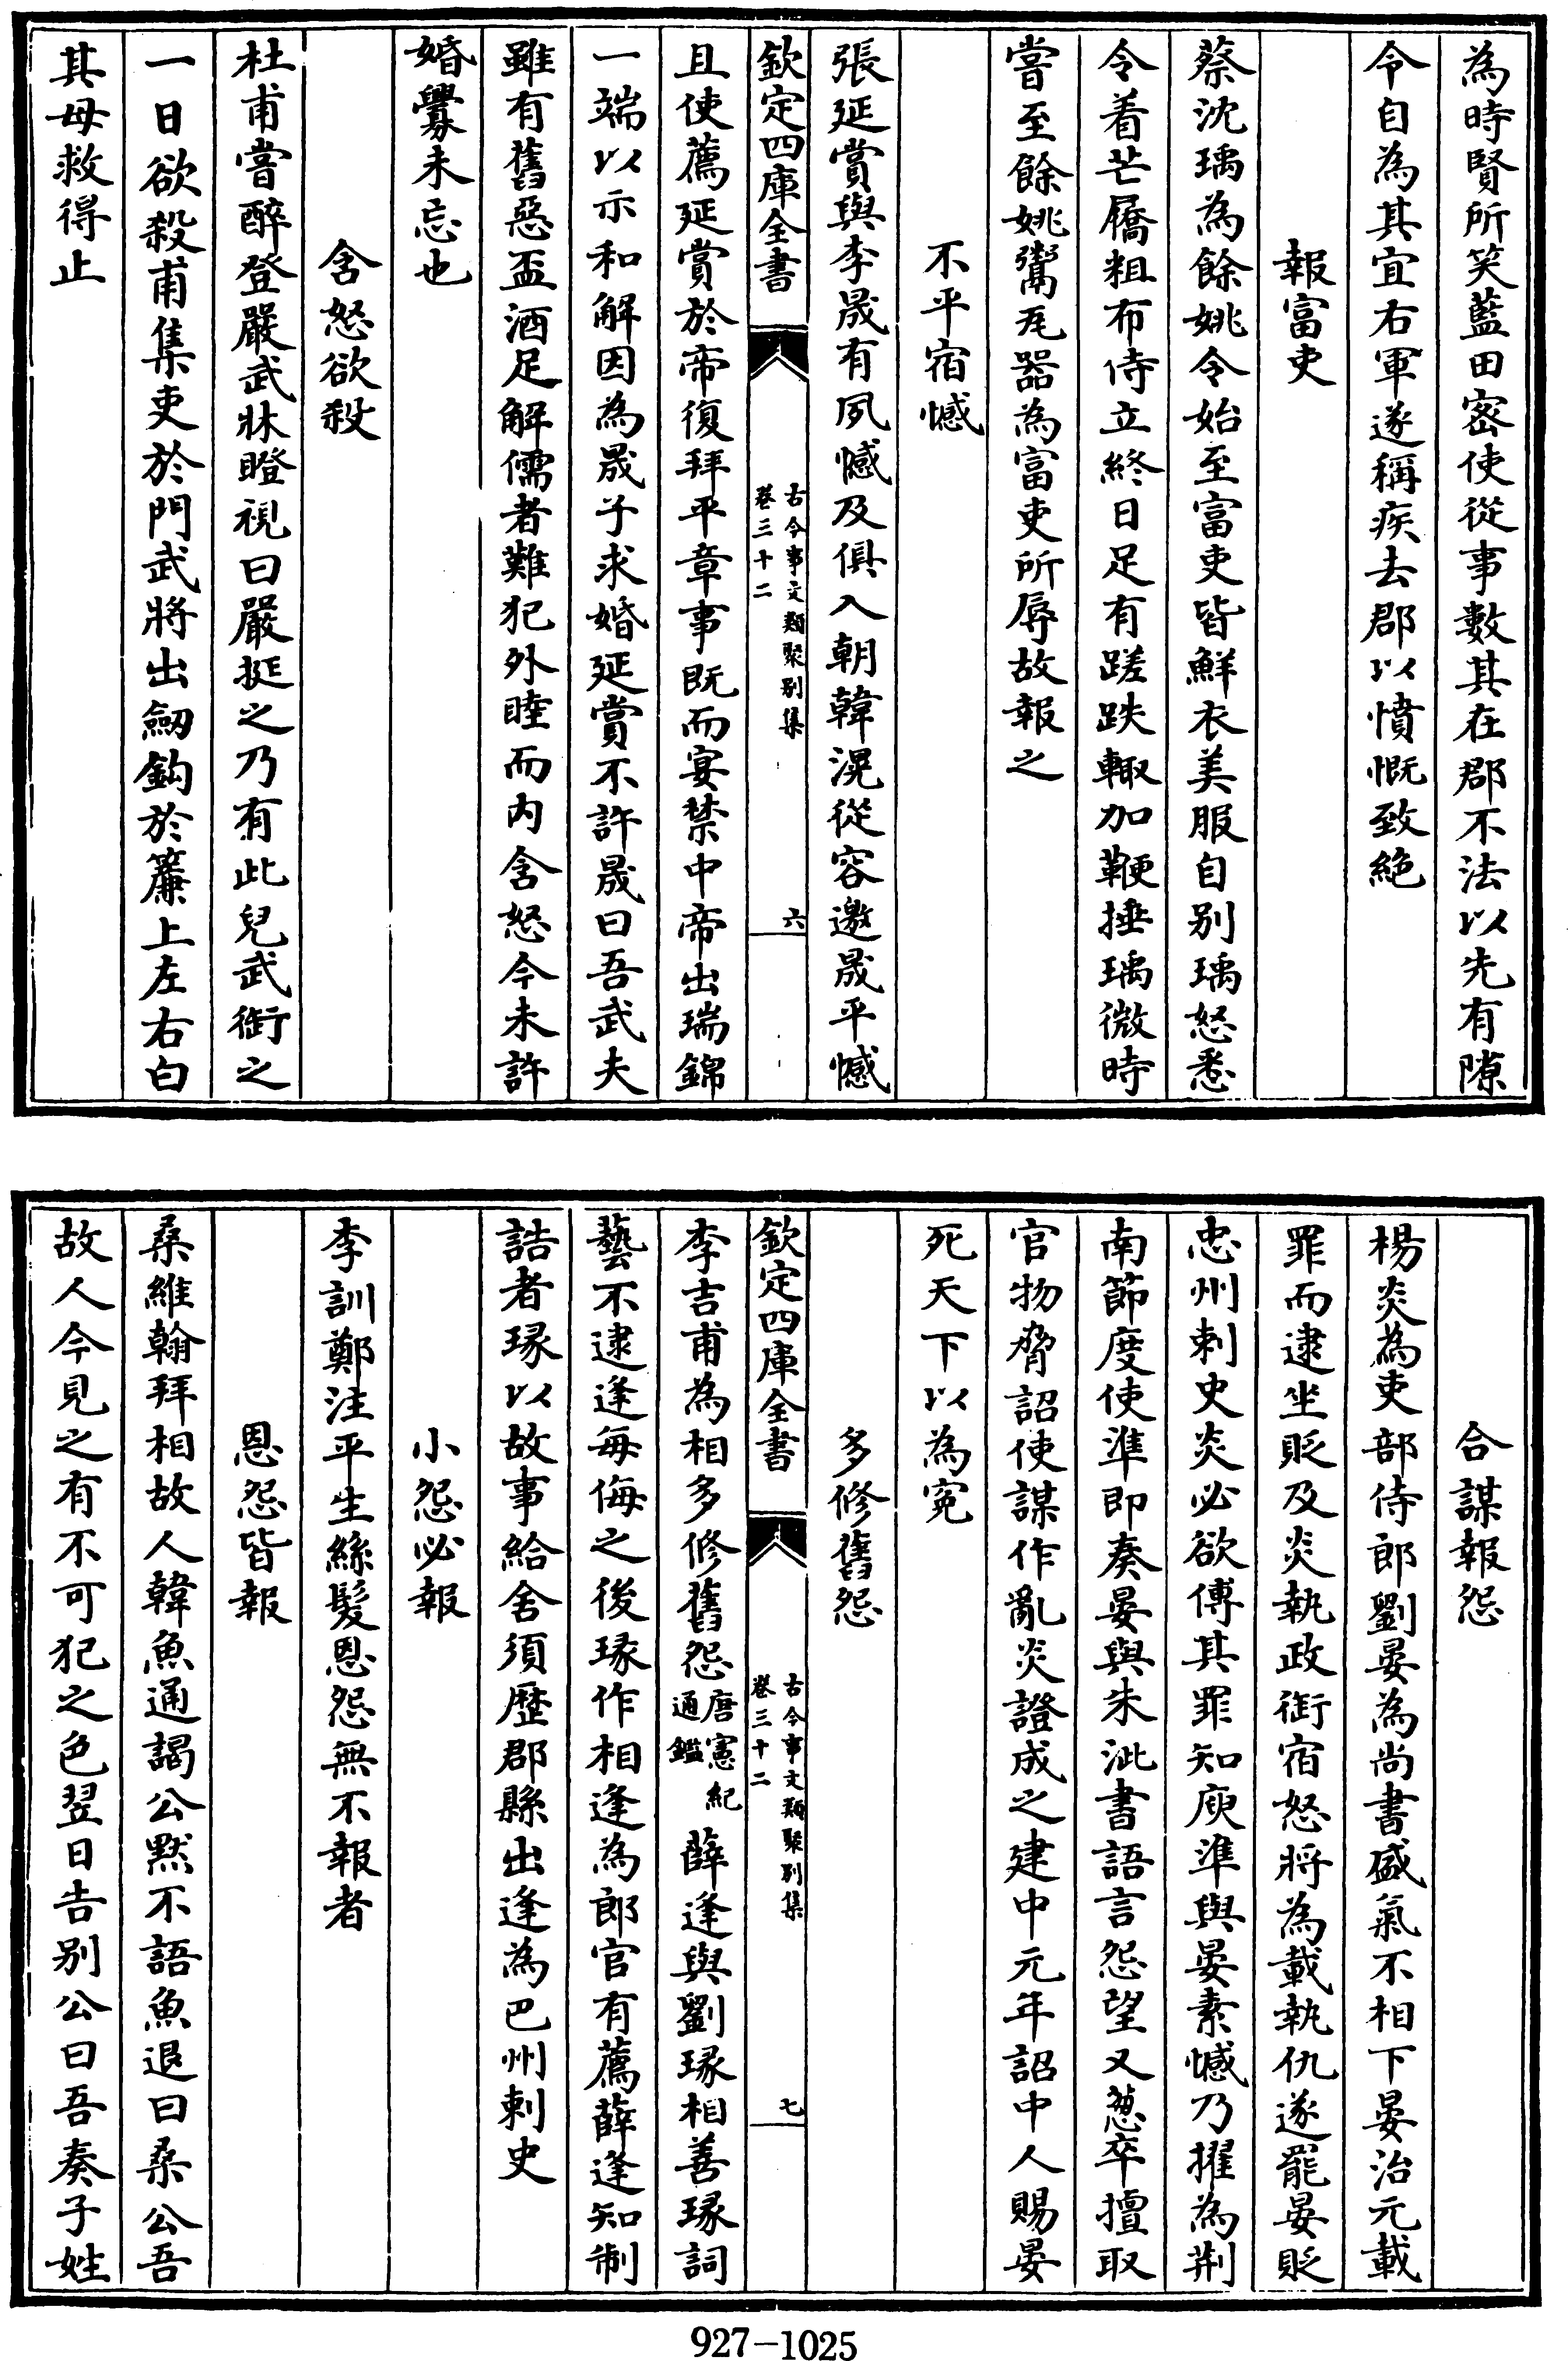 為時賢所笑藍田密使從事數其在郡不法以先有隙
令自為其宜右軍遂稱疾去郡以憤慨致絶
報富吏
蔡沈瑀為餘姚令始至富吏皆鮮衣美服自别瑀怒悉
令着芒屩粗布侍立終日足有蹉跌輙加鞭捶瑀微時
嘗至餘姚鬻瓦器為富吏所辱故報之
不平宿憾
張延賞與李晟有夙憾及俱入朝韓滉從容邀晟平憾
欽定四庫全書
古今事文類聚别集
卷三十二
六
且使薦延賞於帝復拜平章事既而宴禁中帝出瑞錦
一端以示和解因為晟子求婚延賞不許晟曰吾武夫
雖有舊惡盃酒足解儒者難犯外睦而内含怒今未許
婚釁未忘也
含怒欲殺
杜甫嘗醉登嚴武牀瞪視曰嚴挺之乃有此兒武銜之
一日欲殺甫集吏於門武將出劒鈎於簾上左右白
其母救得止
合謀報怨
楊炎為吏部侍郎劉晏為尚書盛氣不相下晏治元載
罪而逮坐貶及炎執政銜宿怒將為載執仇遂罷晏貶
忠州刺史炎必欲傅其罪知庾準與晏素憾乃擢為荆
南節度使準即奏晏與朱泚書語言怨望又蒐卒擅取
官物脅詔使謀作亂炎證成之建中元年詔中人賜晏
死天下以為寃
多修舊怨
欽定四庫全書
古今事文類聚别集
卷三十二
七
李吉甫為相多修舊怨唐憲紀通鑑 薛逢與劉瑑相善瑑詞
藝不逮逢每侮之後瑑作相逢為郎官有薦薛逢知制
誥者瑑以故事給舍須歴郡縣出逢為巴州刺史
小怨必報
李訓鄭注平生絲髮恩怨無不報者
恩怨皆報
桑維翰拜相故人韓魚通謁公黙不語魚退曰桑公吾
故人今見之有不可犯之色翌日告别公曰吾奏子姓
927-1025